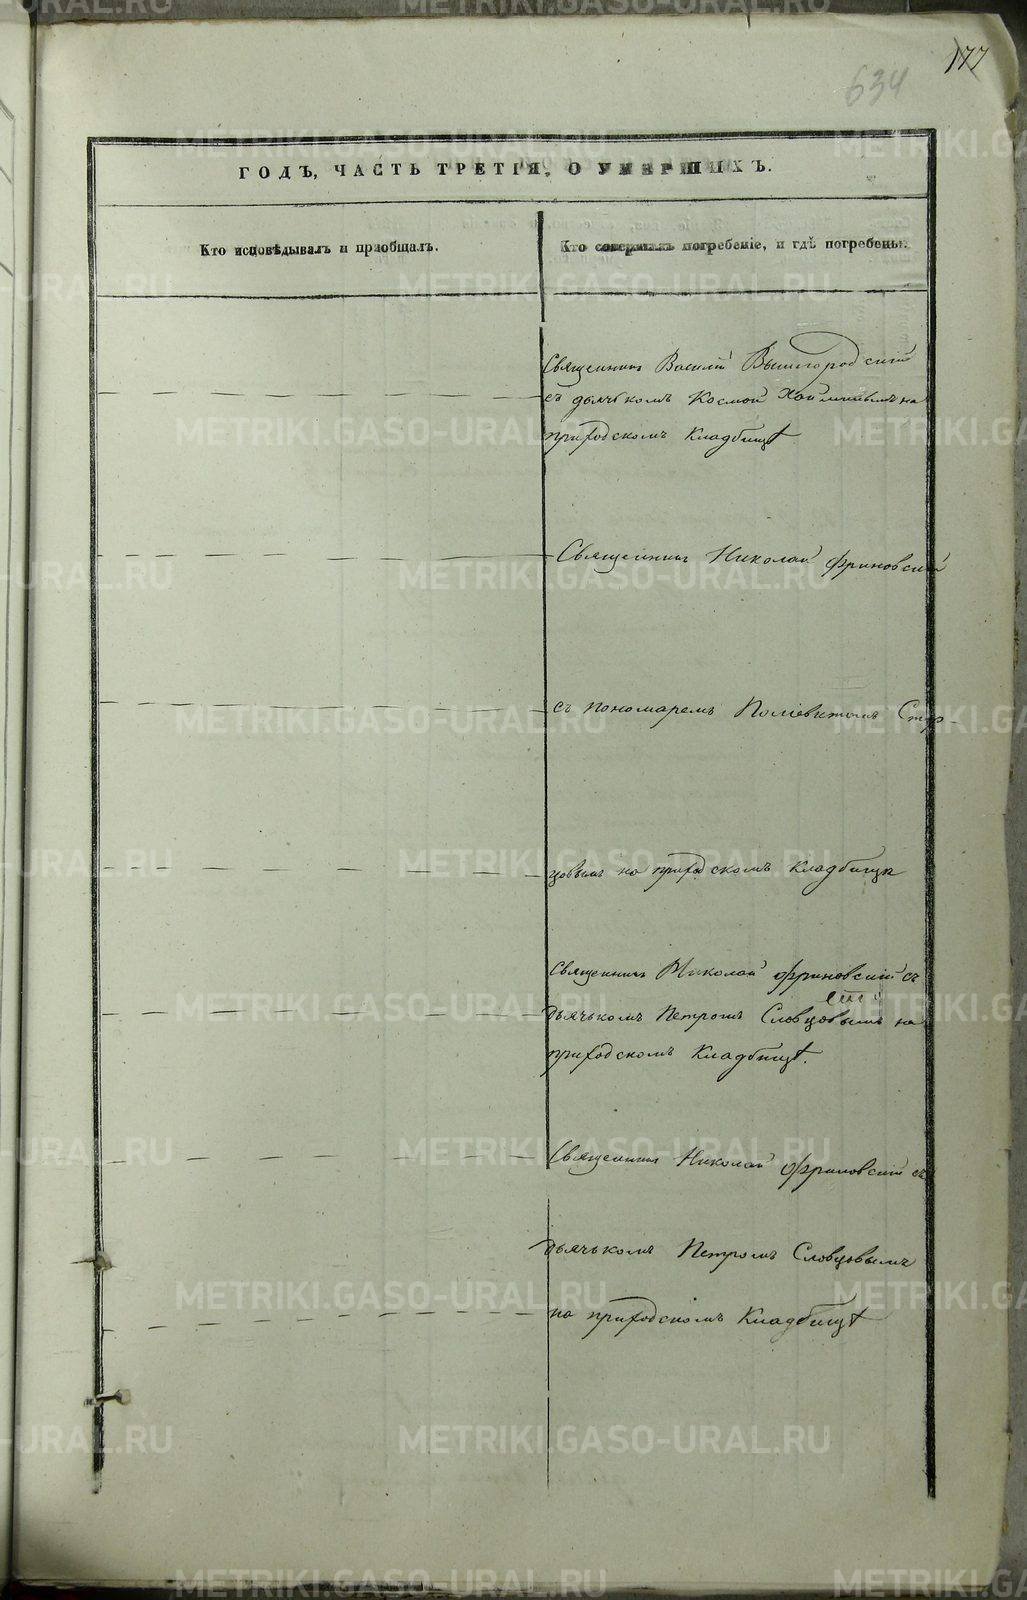 177
634
ГОДЪ, ЧАСТЬ ТРЕТІЯ, О УМЕРШИХЪ.
Кто исповѣдывалъ и пріобщалъ.
Кто совершалъ погребеніе, и гдѣ погребены.
Священникъ Василій Вышегородскій
съ дьячькомъ Космой на
приходскомъ Кладбищѣ
Священникъ Николай Фриновскій
съ пономаремъ
цовымъ на приходскомъ Кладбищѣ
Священникъ Николай Фриновскій съ
дьячькомъ Петромъ Словцовымъ на
приходскомъ Кладбищѣ.
Священникъ Николай Фриновскій съ
дьячькомъ Петромъ Словцовымъ
на приходскомъ Кладбищѣ
METRIKI.GASO-URAL.RU